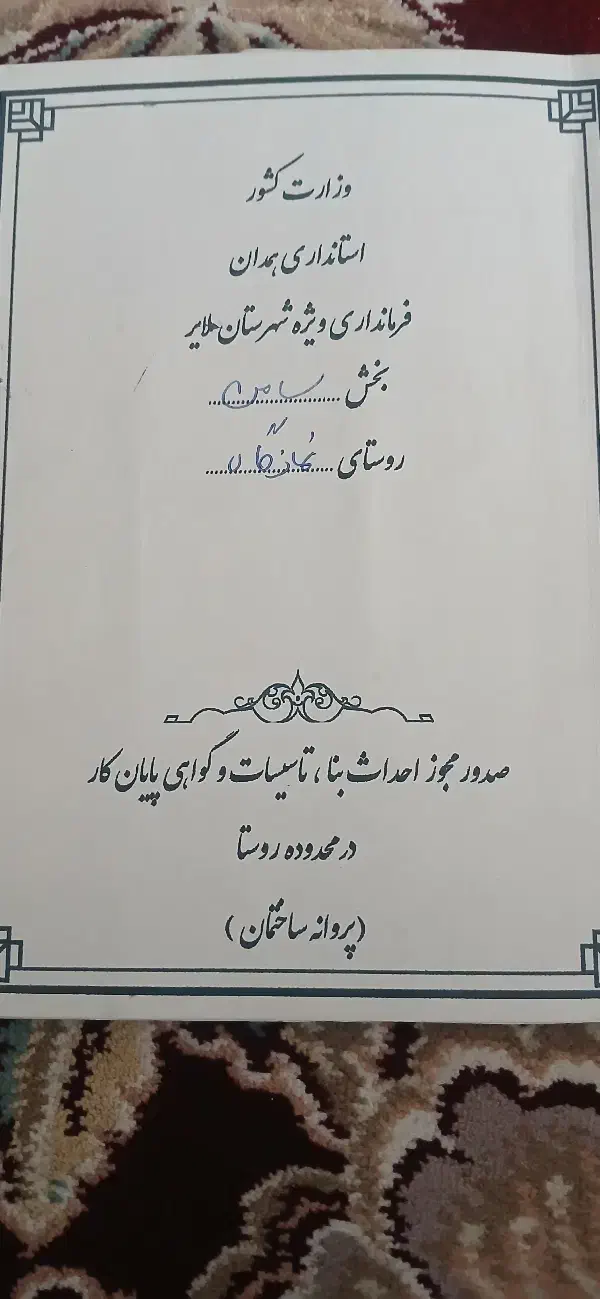 وزارت کشور
استانداری همدان
فرمانداری ویژه شهرستان ملایر
بخش سامن
روستای
صدور مجوز احداث بنا، تاسیسات و گواهی پایان کار
در محدوده روستا
(پروانه ساختمان)